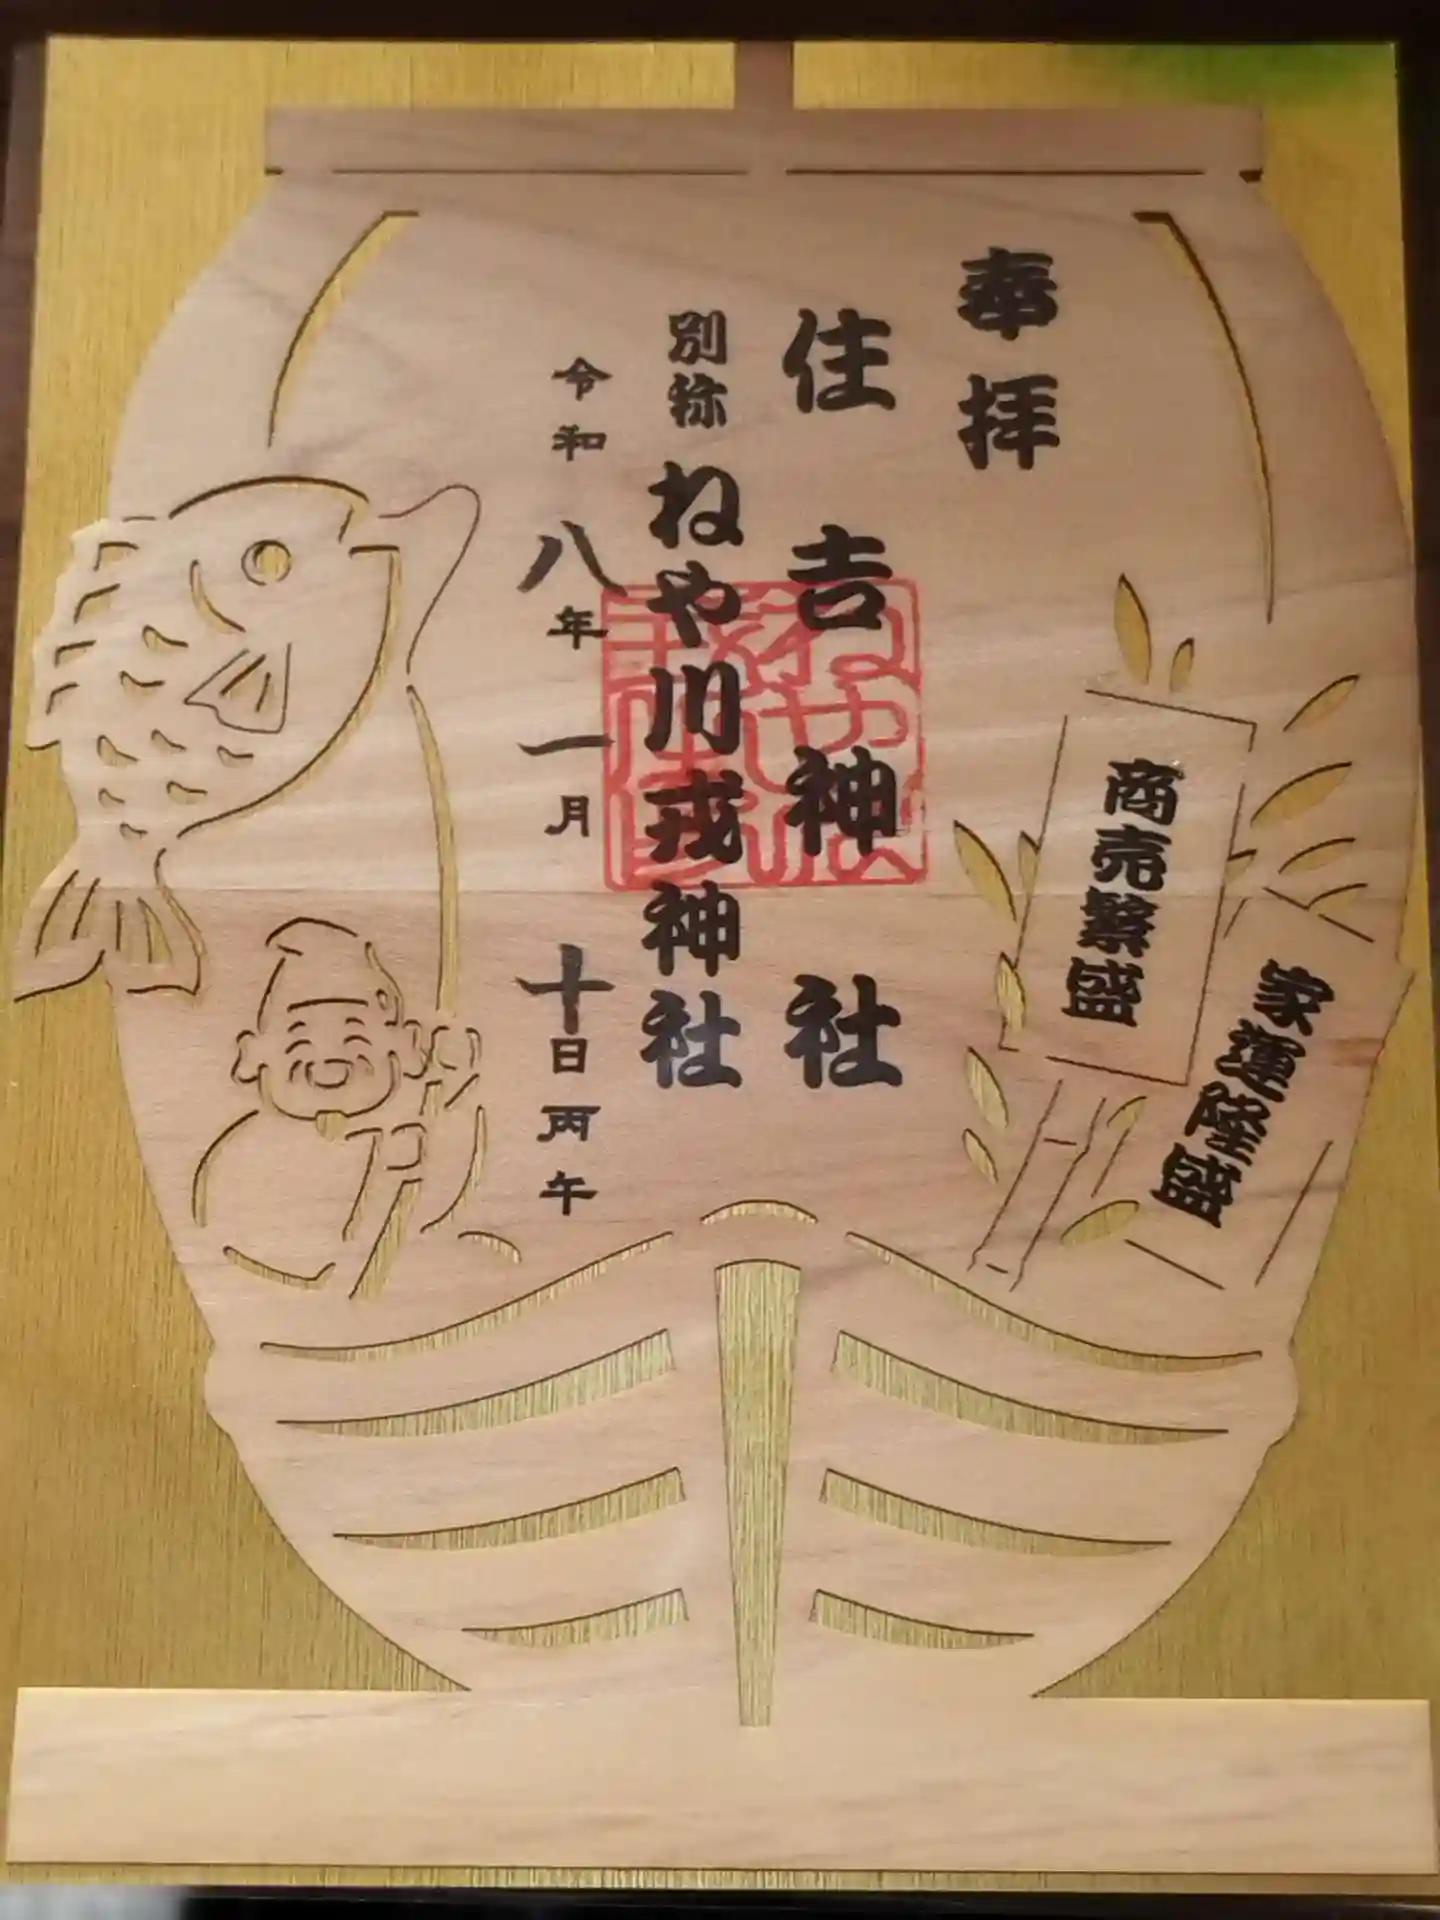 奉拝
住吉神社
別称 ねや川戎神社
令和八年一月十日丙午
商売繁盛
家運隆盛